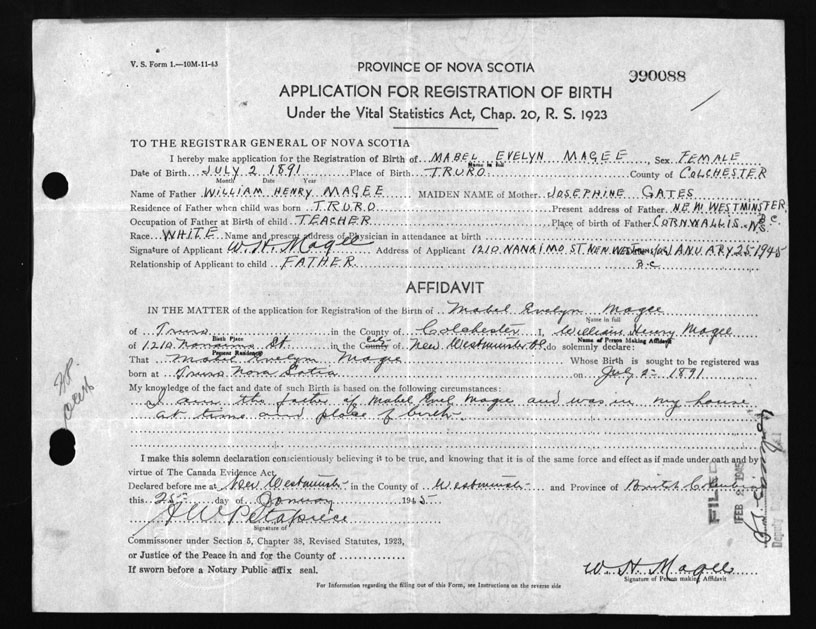 V. S. Form 1.—10M-11-43
PROVINCE OF NOVA SCOTIA
990088
APPLICATION FOR REGISTRATION OF BIRTH
Under the Vital Statistics Act, Chap. 20, R. S. 1923
TO THE REGISTRAR GENERAL OF NOVA SCOTIA
I hereby make application for the Registration of Birth of MABEL EVELYN MAGEE, Sex FEMALE
Name in full
Date of Birth JULY 2 1891 Place of Birth TRURO County of COLCHESTER
Month Date Year
Name of Father WILLIAM HENRY MAGEE MAIDEN NAME of Mother JOSEPHINE GATES
Residence of Father when child was born TRURO Present address of Father NEW WESTMINSTER, B.C.
Occupation of Father at Birth of child TEACHER Place of birth of Father CORNWALLIS N.S.
Race WHITE Name and present address of Physician in attendance at birth
Signature of Applicant W. H. Magee Address of Applicant 1210 NANAIMO ST. NEW WEST. B.C. JANUARY 25 1945
Relationship of Applicant to child FATHER
AFFIDAVIT
IN THE MATTER of the application for Registration of the Birth of Mabel Evelyn Magee
Name in full
of Truro in the County of Colchester I, William Henry Magee
Birth Place Name of Person Making Affidavit
of 1210 Nanaimo St in the County city of New Westminster BC, do solemnly declare:
Persons Residence
That Mabel Evelyn Magee Whose Birth is sought to be registered was
born at Truro Nova Scotia on July 2 1891
My knowledge of the fact and date of such Birth is based on the following circumstances:
I am the father of Mabel Magee and was in my house
at time and place of birth.
I make this solemn declaration conscientiously believing it to be true, and knowing that it is of the same force and effect as if made under oath and by
virtue of The Canada Evidence Act.
Declared before me at New Westminster in the County of Westminster and Province of British Columbia
this 25 day of January 1945
Signature of
Commissioner under Section 5, Chapter 38, Revised Statutes, 1923,
or Justice of the Peace in and for the County of
If sworn before a Notary Public affix seal.
W. H. Magee
Signature of Person making Affidavit
For Information regarding the filling out of this Form, see Instructions on the reverse side
FILED
FEB 2 1945
Deputy